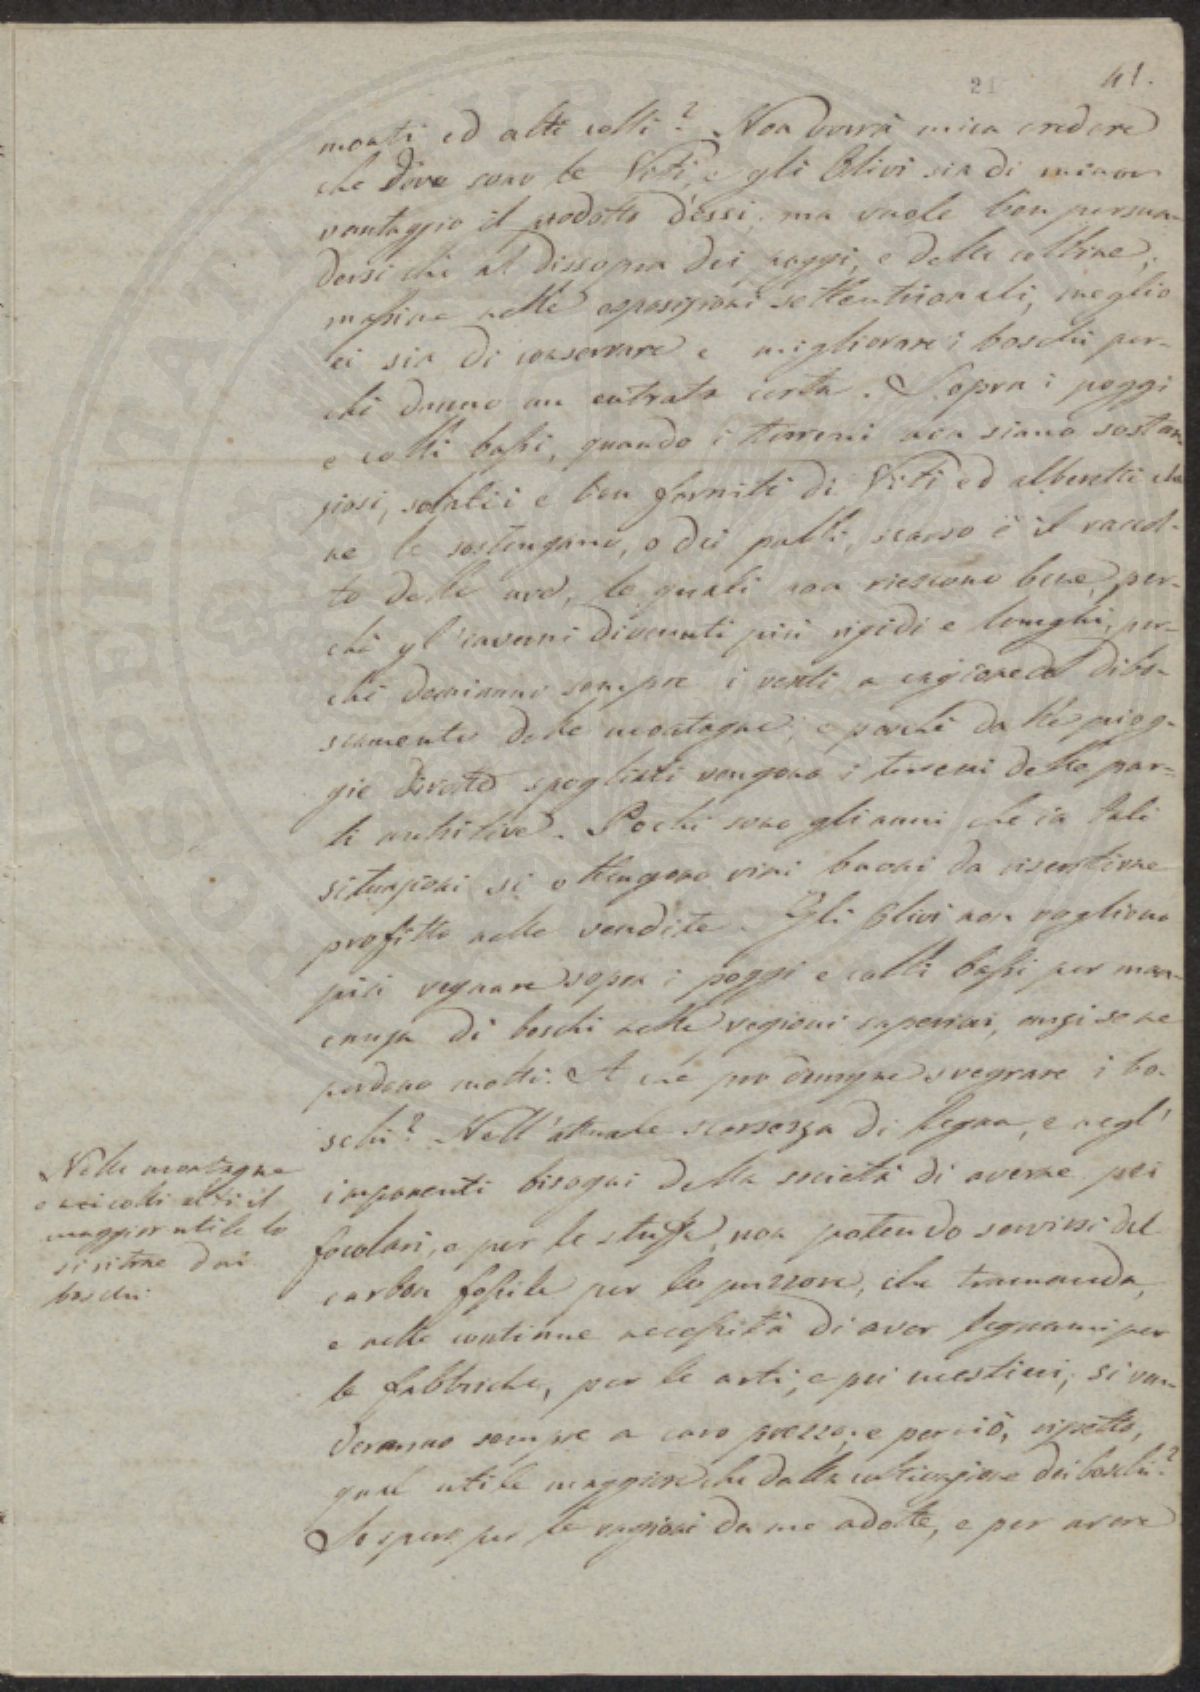 21 41.
monti ed alti colli? Non vorrà mica credere
che dove sono le Viti, e gli Olivi sia di minor
vantaggio il prodotto d'essi, ma vuole ben persua-
dersi che al dissopra dei poggi, e delle colline,
massime nelle esposizioni settentrionali, meglio
ei sia di conservare e migliorare i boschi per-
chè danno un entrata certa. Sopra i poggi
e colli bassi, quando i terreni non siano sostan-
ziosi, solatii e ben forniti di Viti ed alberetti che
ne le sostengano, o dei palli, scarso è il raccol-
to delle uve, le quali non riescono bene, per-
chè gl'inverni divenuti più rigidi e lunghi, per-
chè dominano sempre i venti a cagione del disbo-
scamento delle montagne, e perchè dalle piog-
gie dirotte spogliati vengono i terreni delle par-
ti nutritive. Pochi sono gli anni che in tali
situazioni si ottengono vini buoni da risentirne
profitto nelle vendite. Gli Olivi non vogliono
più vegnare sopra i poggi e colli bassi per man-
canza di boschi nelle regioni superiori, anzi se ne
perdono molti. A che pro dunque svegrare i bo-
schi? Nell'attuale scarsezza di legna, e negl'
imponenti bisogni della società di averne pei
focolari, e per le stuffe, non potendo servirsi del
carbon fossile per lo puzzore, che tramanda,
e nelle continue necessità di aver legnami per
le fabbriche, per le arti, e pei mestieri, si ven-
deranno sempre a caro prezzo; e perciò, ripetto,
qual utile maggiore che dalla coltivazione dei boschi?
Io spero per le ragioni da me adotte, e per avere
Nelle montagne
e nei colli alti il
maggior utile lo
si ritrae dai
boschi.